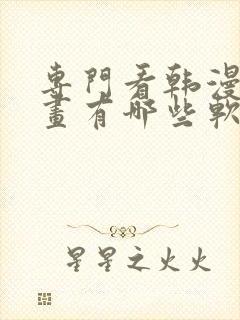 專門看韩漫
畫有哪些軟
星星之火火